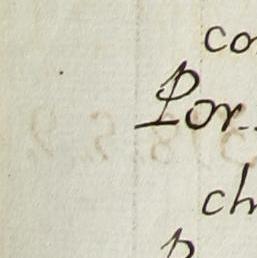 co
Por.
ch
P